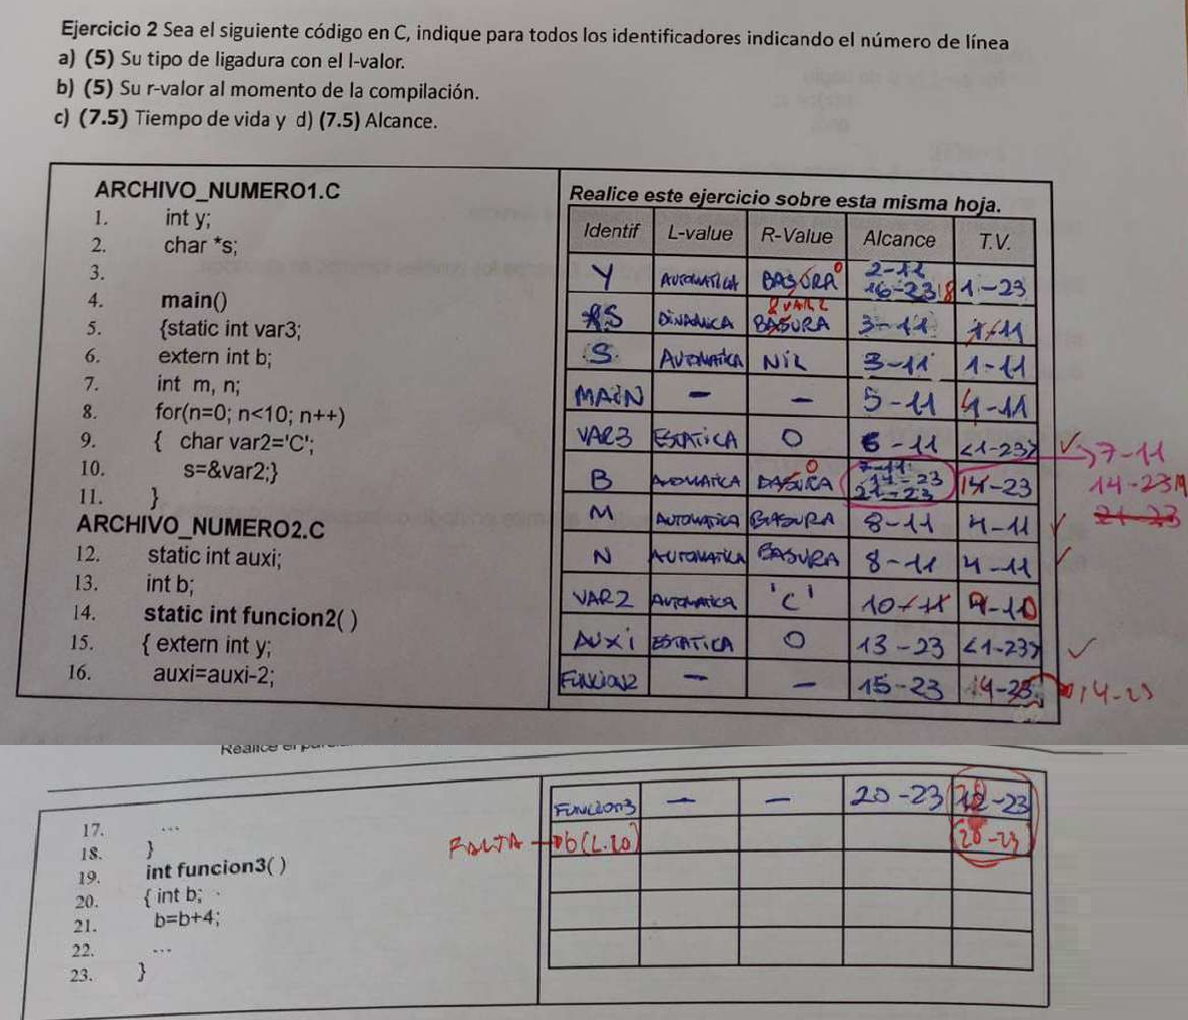 Ejercicio 2 Sea el siguiente código en C, indique para todos los identificadores indicando el número de línea
a) (5) Su tipo de ligadura con el l-valor.
b) (5) Su r-valor al momento de la compilación.
c) (7.5) Tiempo de vida y d) (7.5) Alcance.
ARCHIVO_NUMERO1.C
1. int y;
2. char *s;
3.
4. main()
5. {static int var3;
6. extern int b;
7. int m, n;
8. for(n=0; n<10; n++)
9. { char var2='C';
10. s=&var2;}
11. }
ARCHIVO_NUMERO2.C
12. static int auxi;
13. int b;
14. static int funcion2( )
15. { extern int y;
16. auxi=auxi-2;
Realice este ejercicio sobre esta misma hoja.
Identif L-value R-Value Alcance T.V.
Y AUTOMATICA BASURA 0 2-11 16-23 18 1-23
*S DINAMICA BASURA &VAR2 3-11 1-11
S AUTOMATICA NIL 3-11 1-11
MAIN — — 5-11 4-11
VAR3 ESTATICA 0 6-11 <1-23> ✓
B AUTOMATICA BASURA 0 7-11 14-23 21-23 14-23 7-11 14-23 21-23
M AUTOMATICA BASURA 8-11 4-11 ✓
N AUTOMATICA BASURA 8-11 4-11 ✓
VAR2 AUTOMATICA 'C' 10-11 9-10
AUXI ESTATICA 0 13-23 <1-23> ✓
FUNCION2 — — 15-23 14-23 14-23
Realice el
17. ...
18. }
19. int funcion3( )
20. { int b;
21. b=b+4;
22. ...
23. }
FUNCION3 — — 20-23 12-23
FALTA → b(L.20) 20-23